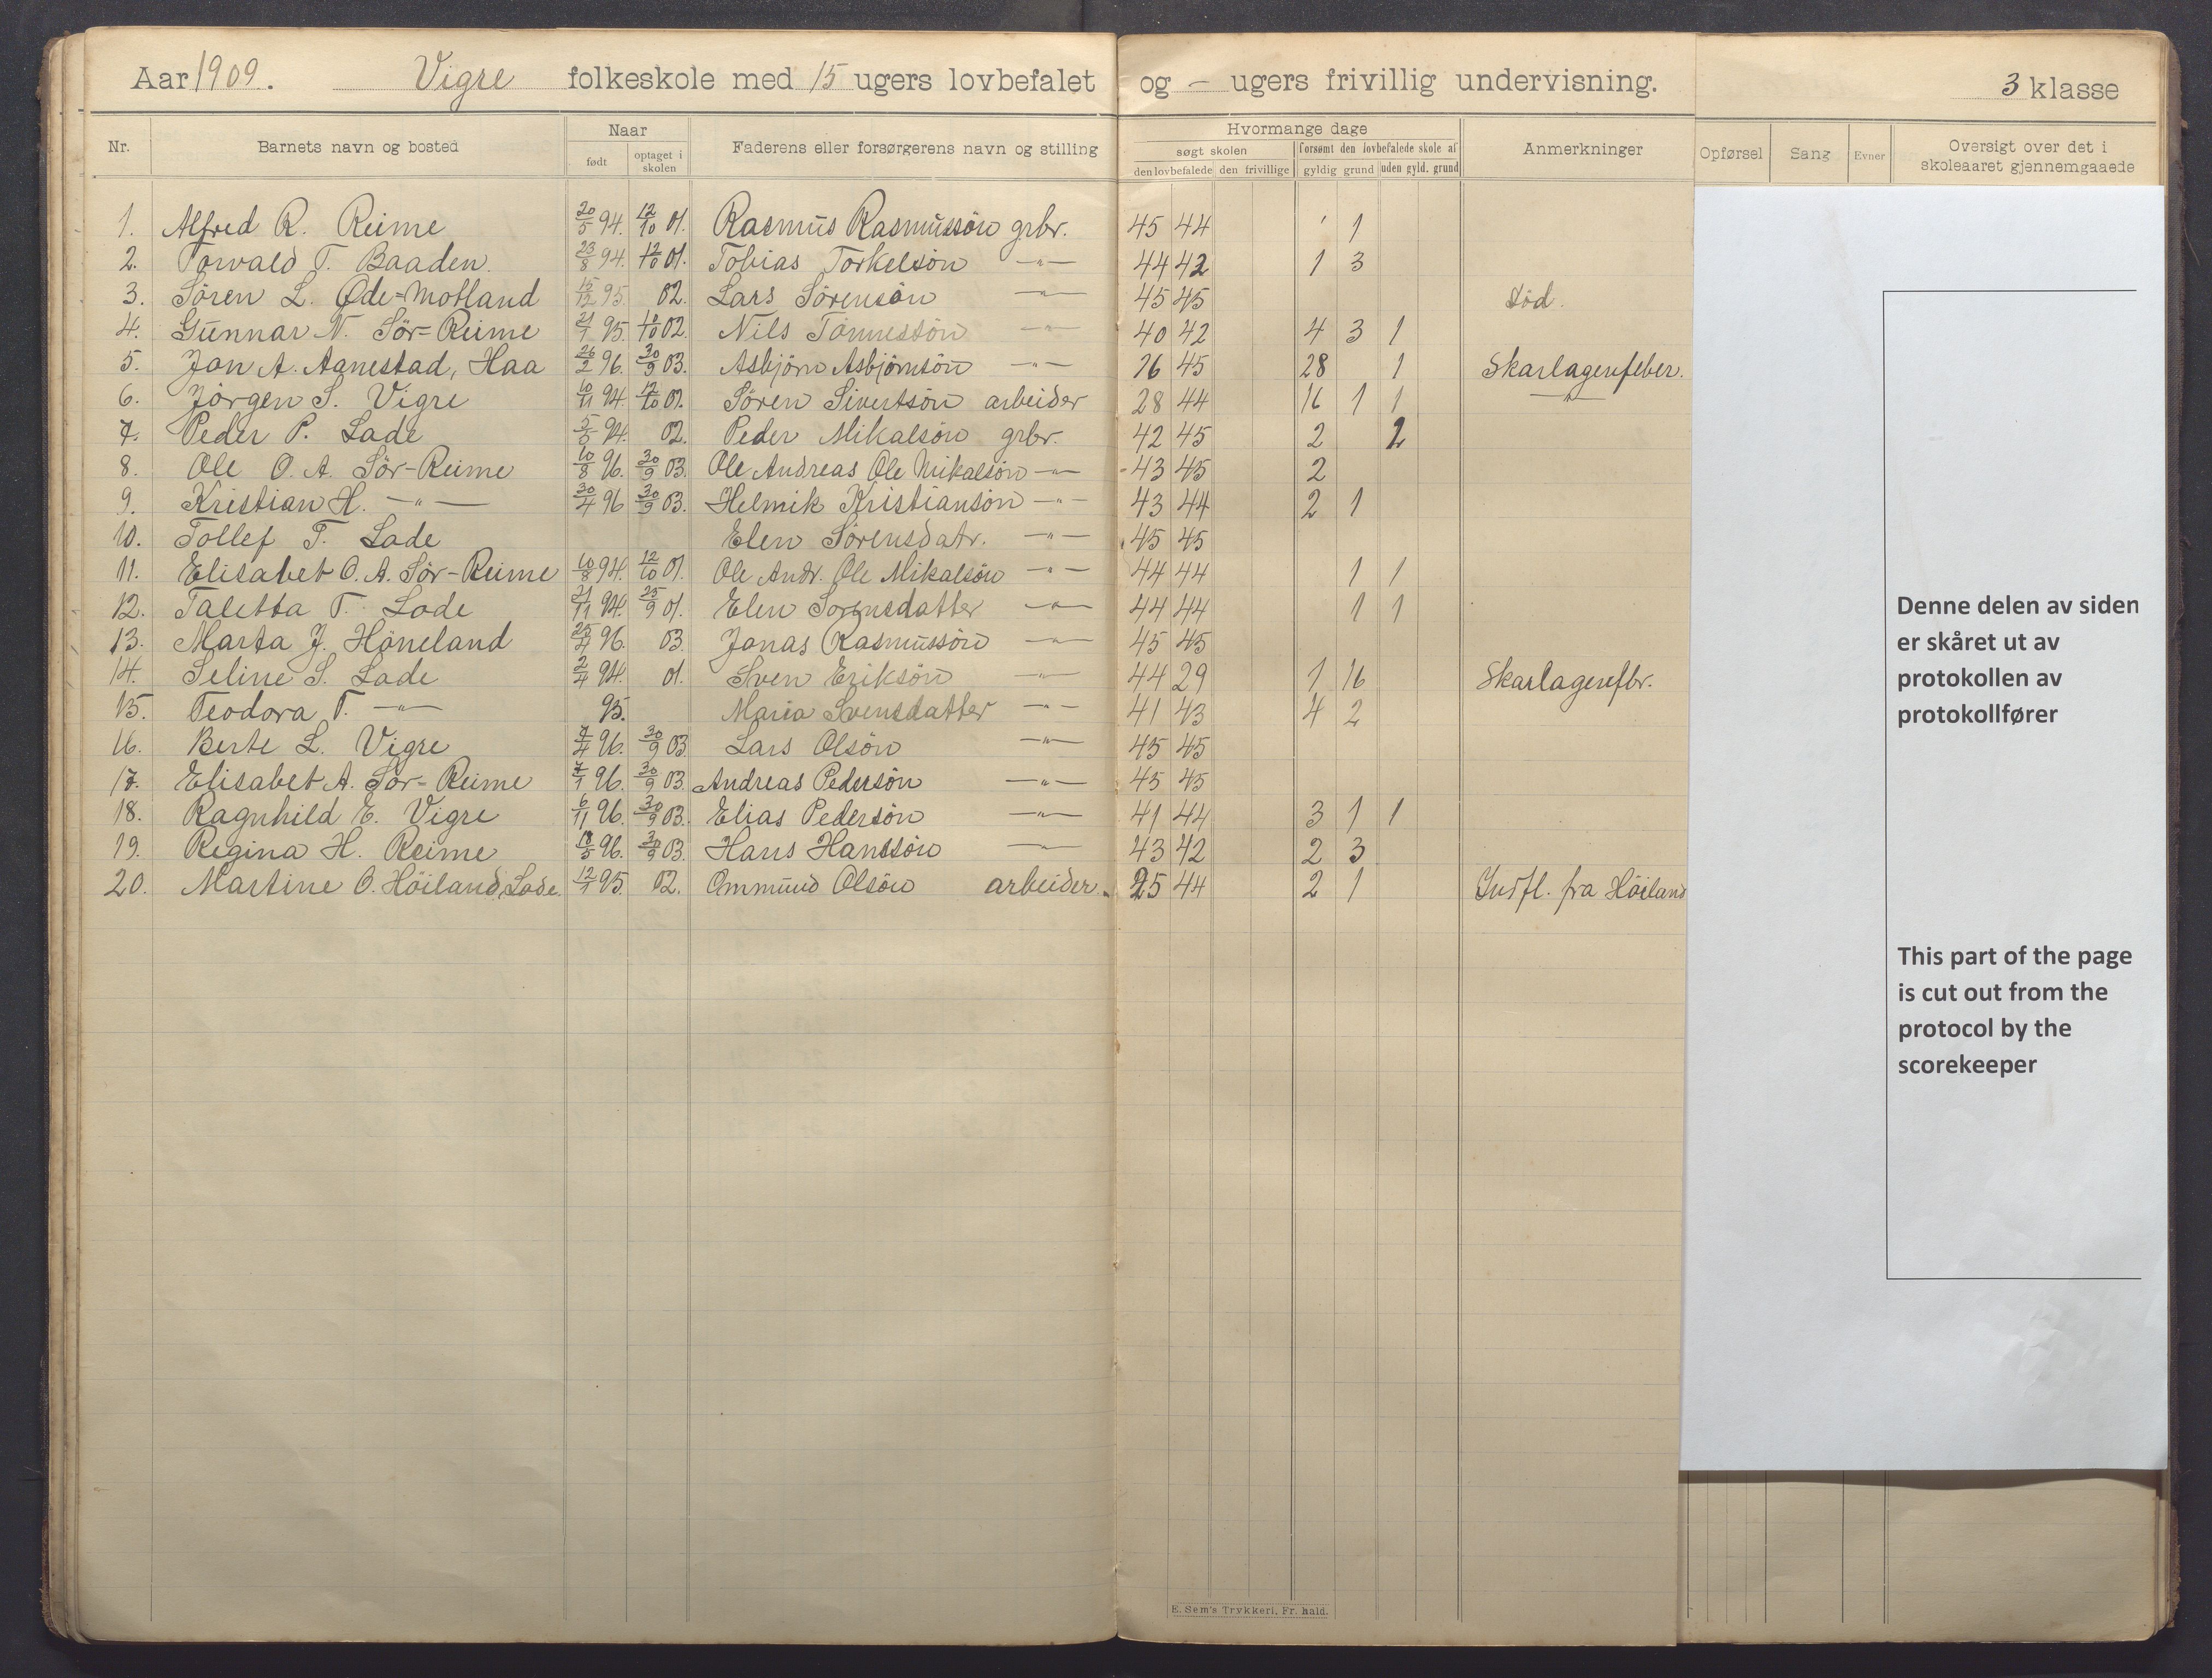 Aar 1909. Vigre folkeskole med 15 ugers lovbefalet og - ugers frivillig undervisning. 3 klasse
Nr. Barnets navn og bosted Naar født optaget i skolen Faderens eller forsørgerens navn og stilling Hvormange dage søgt skolen den lovbefalede den frivillige forsømt den lovbefalede skole af gyldig grund uden gyld. grund Anmerkninger Opførsel Sang Evner Oversigt over det i skoleaaret gjennemgaaede
1. Alfred R. Reime 20/5 94. 12/10 01. Rasmus Rasmussön grbr. 45 44 1
2. Torvald T. Baaden. 23/8 94. 12/10 01. Tobias Torkelsön -"- 44 42 1 3
3. Sören L. Øde=Motland 15/12 95. 02. Lars Sörensön -"- 45 45 död.
4. Gunnar N. Sör=Reime 21/1 95. 10/10 02. Nils Tönnessön -"- 40 42 4 3 1
5. Jon A. Aanestad, Haa 26/2 96. 30/9 03. Asbjörn Asbjörnsön -"- 16 45 28 1 Skarlagenfeber.
6. Jörgen S. Vigre 10/11 94. 12/10 01. Sören Sivertsön arbeider 28 44 16 1 1 -"-
7. Peder P. Lade 5/5 94. 02. Peder Mikalsön grbr. 42 45 2 2
8. Ole O. A. Sör-Reime 10/8 96. 30/9 03. Ole Andreas Ole Mikalsön -"- 43 45 2
9. Kristian H. -"- 30/4 96 30/9 03. Helmik Kristiansön -"- 43 44 2 1
10. Tollef T. Lade Elen Sörensdatr. -"- 45 45
11. Elisabet O. A. Sör-Reime 10/8 94. 12/10 01. Ole Andr. Ole Mikalsön -"- 44 44 1 1
12. Taletta T. Lode 21/11 94. 25/9 01. Elen Sorensdatter -"- 44 44 1 1
13. Marta J. Höneland 25/4 96. 03. Jonas Rasmussön -"- 45 45
14. Seline S. Lade 2/4 94. 01. Sven Eriksön -"- 44 29 1 16 Skarlagenfbr.
15. Teodora T. -"- 95. Maria Svensdatter -"- 41 43 4 2
16. Berte L. Vigre 7/4 96. 30/9 03 Lars Olsön -"- 45 45
17. Elisabet A. Sör-Reime 7/1 96. 30/9 03. Andreas Pedersön -"- 45 45
18. Ragnhild E. Vigre 6/11 96. 30/9 03. Elias Pedersön -"- 41 44 3 1 1
19. Regina H. Reime 18/5 96. 30/9 03. Hans Hanssön -"- 43 42 2 3
20. Martine O. Höiland, Lode. 12/1 95. 02. Ommund Olsön arbeider. 25 44 2 1 Indfl. fra Höiland
Denne delen av siden
er skåret ut av
protokollen av
protokollfører
This part of the page
is cut out from the
protocol by the
scorekeeper
E. Sem's Trykkeri, Fr. hald.